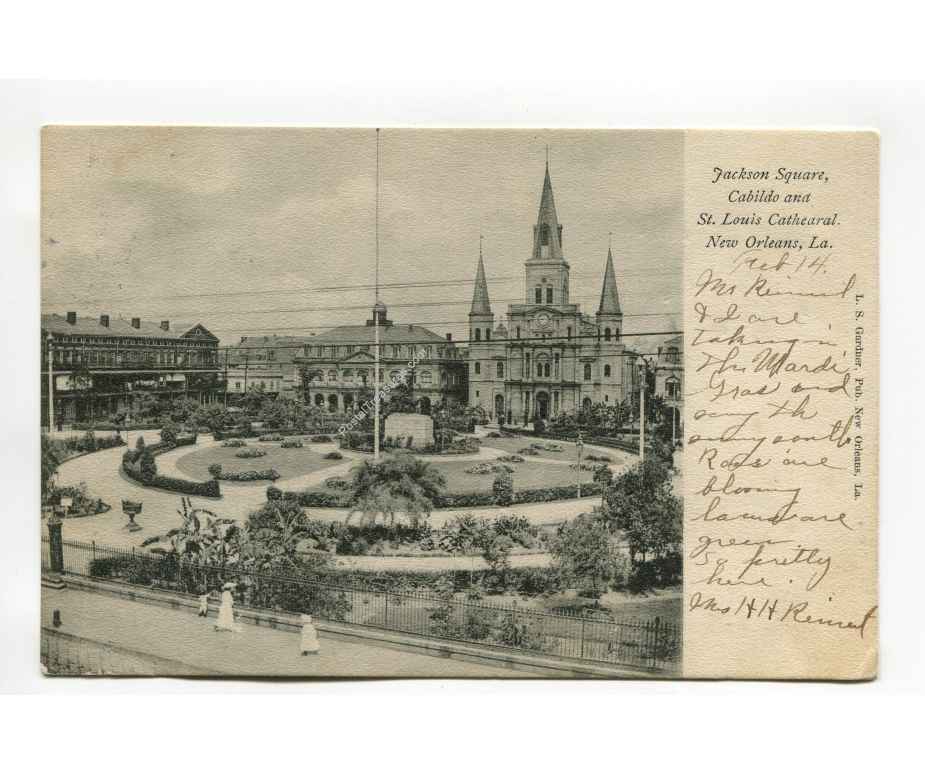 Jackson Square,
Cabildo and
St. Louis Cathedral.
New Orleans, La.
Feb 14.
Mr
& I are
taking in
the Mardi
Gras and
enjoy the
sunny south
Roses are
blooming
lawns are
green
So pretty
here.
Mrs H H
L. S. Gardner, Pub. New Orleans, La.